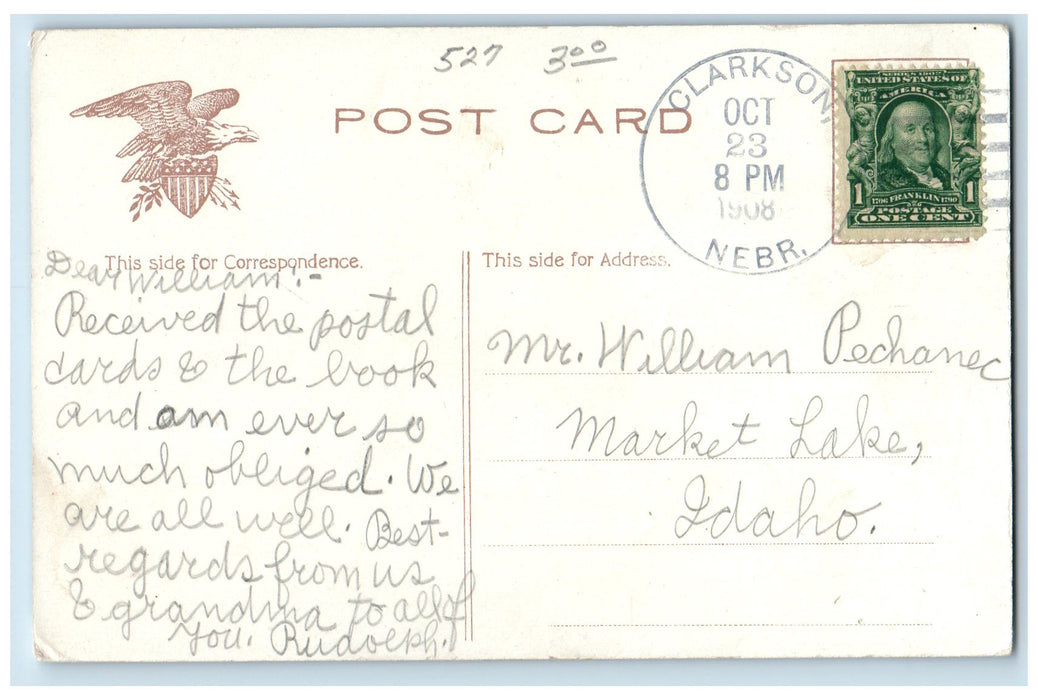 527 3⁰⁰
POST CARD
CLARKSON,
OCT
23
8 PM
1908
NEBR.
SERIES 1902
UNITED STATES OF
AMERICA
1 1
1706 FRANKLIN 1790
POSTAGE
ONE CENT
This side for Correspondence.
Dear William:-
Received the postal
cards & the book
and am ever so
much obliged. We
are all well. Best-
regards from us
& grandma to all of
you. Rudolph.
This side for Address.
Mr. William Pechanec
Market Lake,
Idaho.